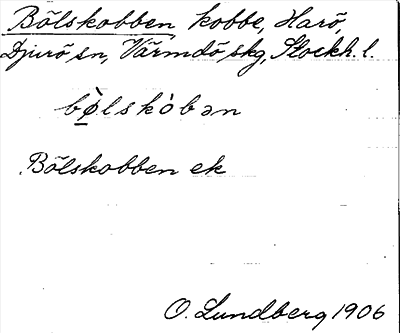 Bölskobben, kobbe, Harö,
Djurö sn, Värmdö skg, Stockh. l.
bø̀lskòbən
Bölskobben ek
O. Lundberg 1906